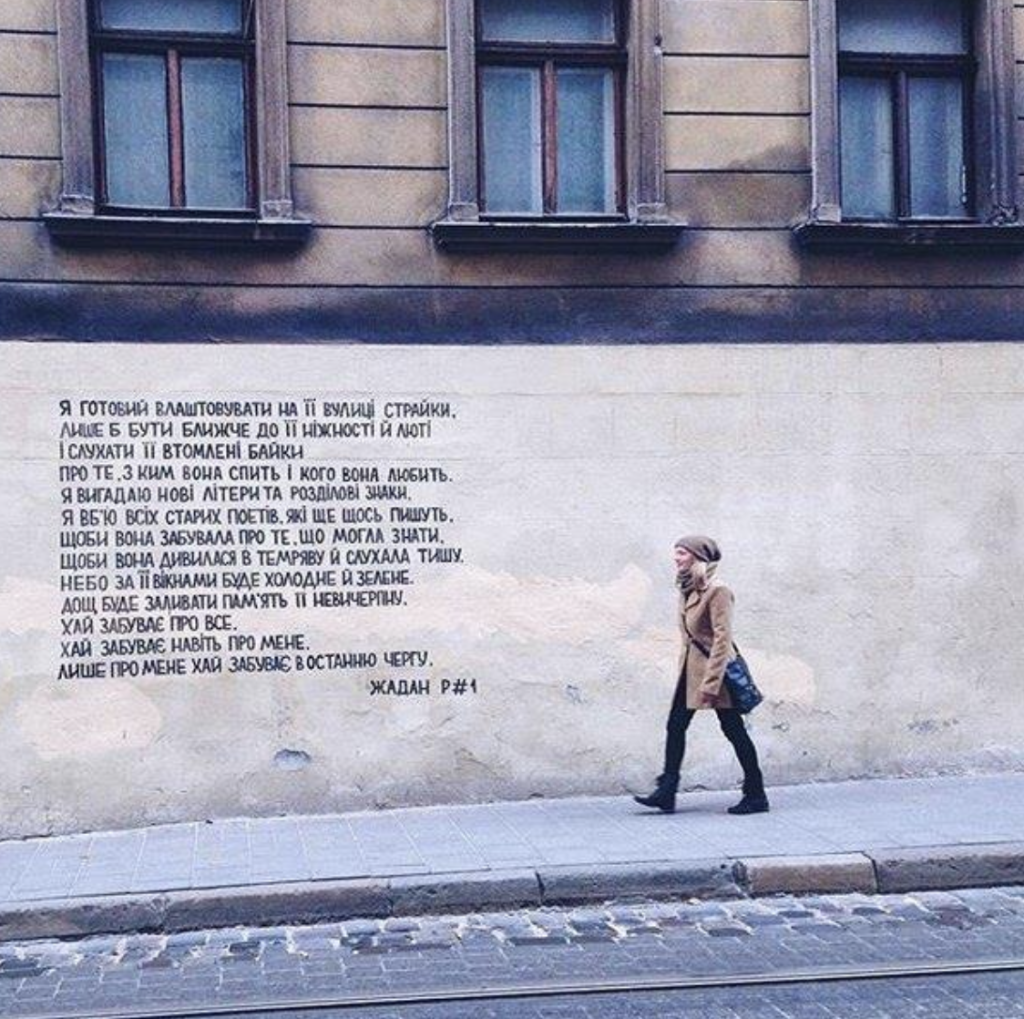 Я ГОТОВИЙ ВЛАШТОВУВАТИ НА ЇЇ ВУЛИЦІ СТРАЙКИ,
ЛИШЕ Б БУТИ БЛИЖЧЕ ДО ЇЇ НІЖНОСТІ Й ЛЮТІ
І СЛУХАТИ ЇЇ ВТОМЛЕНІ БАЙКИ
ПРО ТЕ, З КИМ ВОНА СПИТЬ І КОГО ВОНА ЛЮБИТЬ.
Я ВИГАДАЮ НОВІ ЛІТЕРИ ТА РОЗДІЛОВІ ЗНАКИ,
Я ВБ'Ю ВСІХ СТАРИХ ПОЕТІВ, ЯКІ ЩЕ ЩОСЬ ПИШУТЬ,
ЩОБИ ВОНА ЗАБУВАЛА ПРО ТЕ, ЩО МОГЛА ЗНАТИ,
ЩОБИ ВОНА ДИВИЛАСЯ В ТЕМРЯВУ Й СЛУХАЛА ТИШУ.
НЕБО ЗА ЇЇ ВІКНАМИ БУДЕ ХОЛОДНЕ Й ЗЕЛЕНЕ.
ДОЩ БУДЕ ЗАЛИВАТИ ПАМ'ЯТЬ ЇЇ НЕВИЧЕРПНУ.
ХАЙ ЗАБУВАЄ ПРО ВСЕ.
ХАЙ ЗАБУВАЄ НАВІТЬ ПРО МЕНЕ.
ЛИШЕ ПРО МЕНЕ ХАЙ ЗАБУВАЄ В ОСТАННЮ ЧЕРГУ.
ЖАДАН Р#1